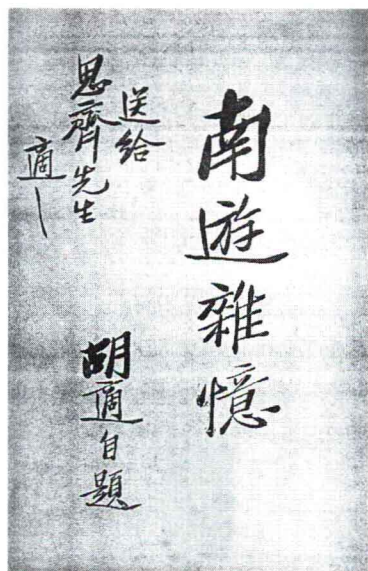 南遊雜憶
胡適自題
送給
思齊先生
適